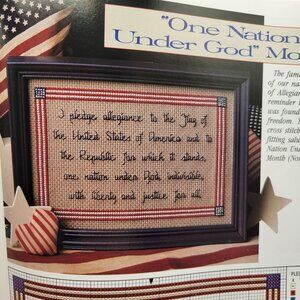 "One Nation
Under God" Mo
I pledge allegiance to the Flag of
the United States of America and to
the Republic for which it stands,
one nation under God, indivisible,
with liberty and justice for all.
The fam
of our na
of Allegian
reminder
was found
freedom.
cross stitch
fitting salu
Nation Und
Month (No